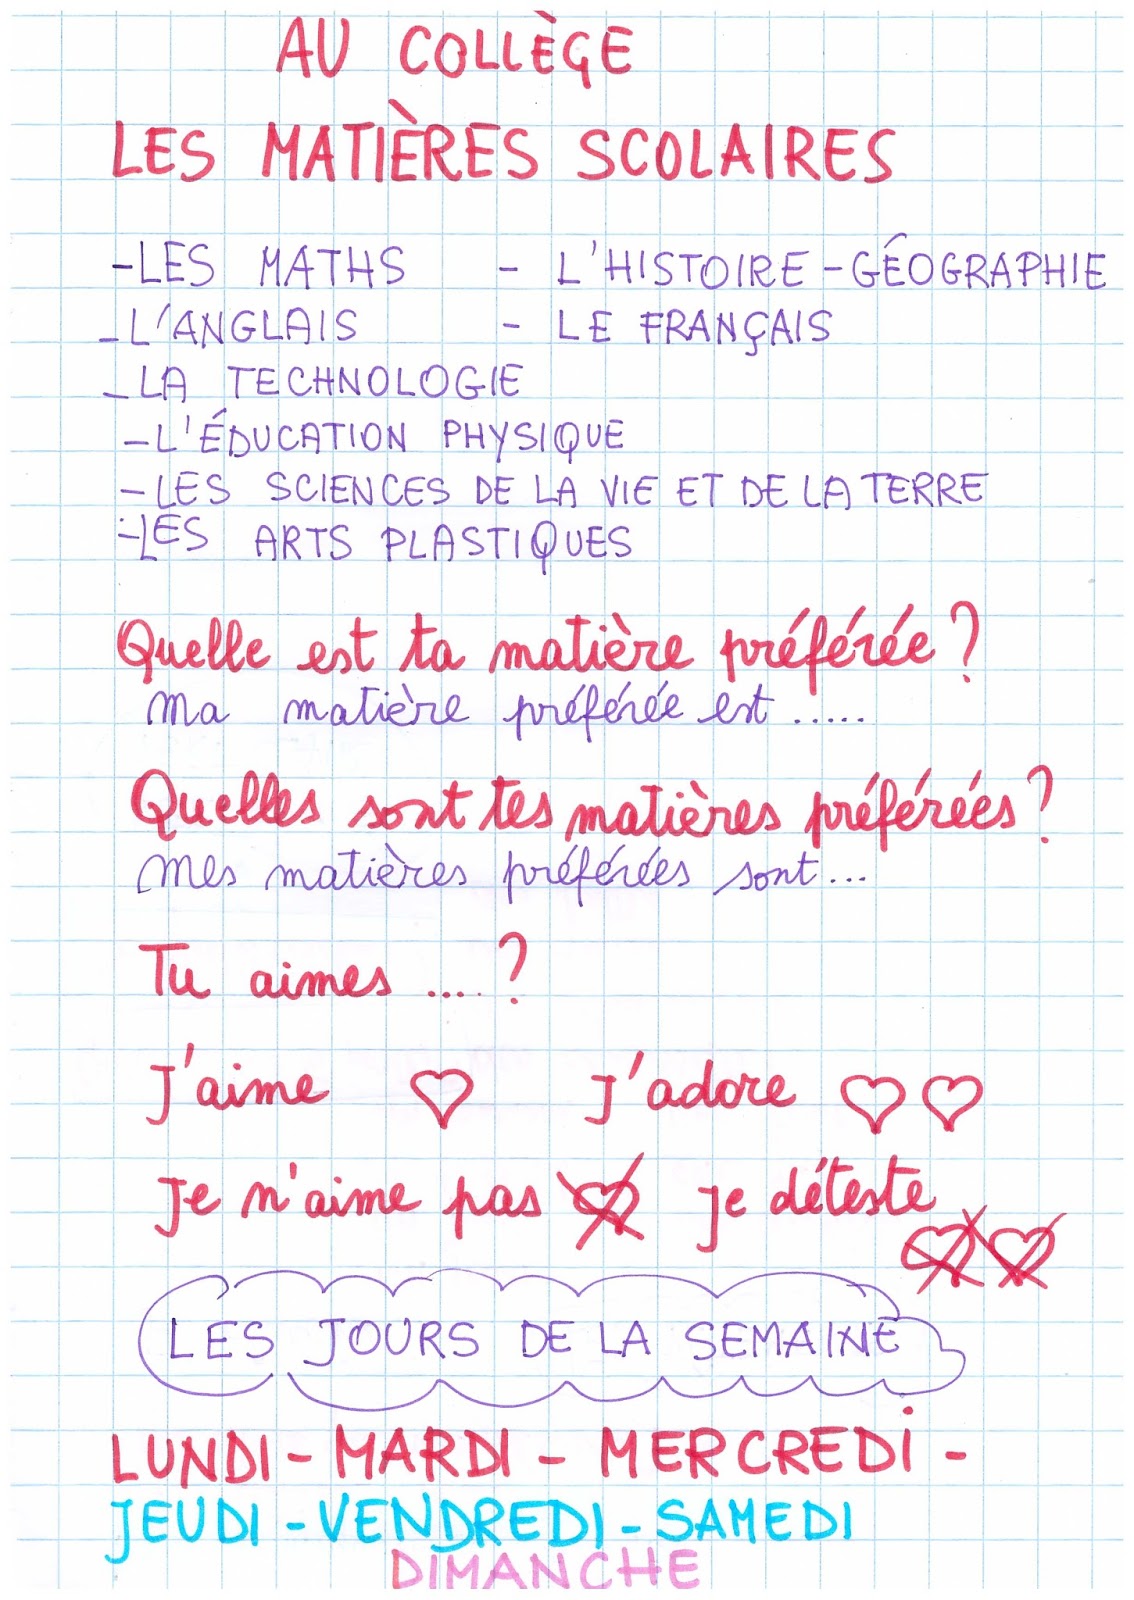 AU COLLÈGE
LES MATIÈRES SCOLAIRES
-LES MATHS - L'HISTOIRE-GÉOGRAPHIE
-L'ANGLAIS - LE FRANÇAIS
-LA TECHNOLOGIE
-L'ÉDUCATION PHYSIQUE
-LES SCIENCES DE LA VIE ET DE LA TERRE
-LES ARTS PLASTIQUES
Quelle est ta matière préférée?
Ma matière préférée est .....
Quelles sont tes matières préférées?
Mes matières préférées sont...
Tu aimes ....?
J'aime J'adore
Je n'aime pas Je déteste
LES JOURS DE LA SEMAINE
LUNDI - MARDI - MERCREDI -
JEUDI - VENDREDI - SAMEDI
DIMANCHE